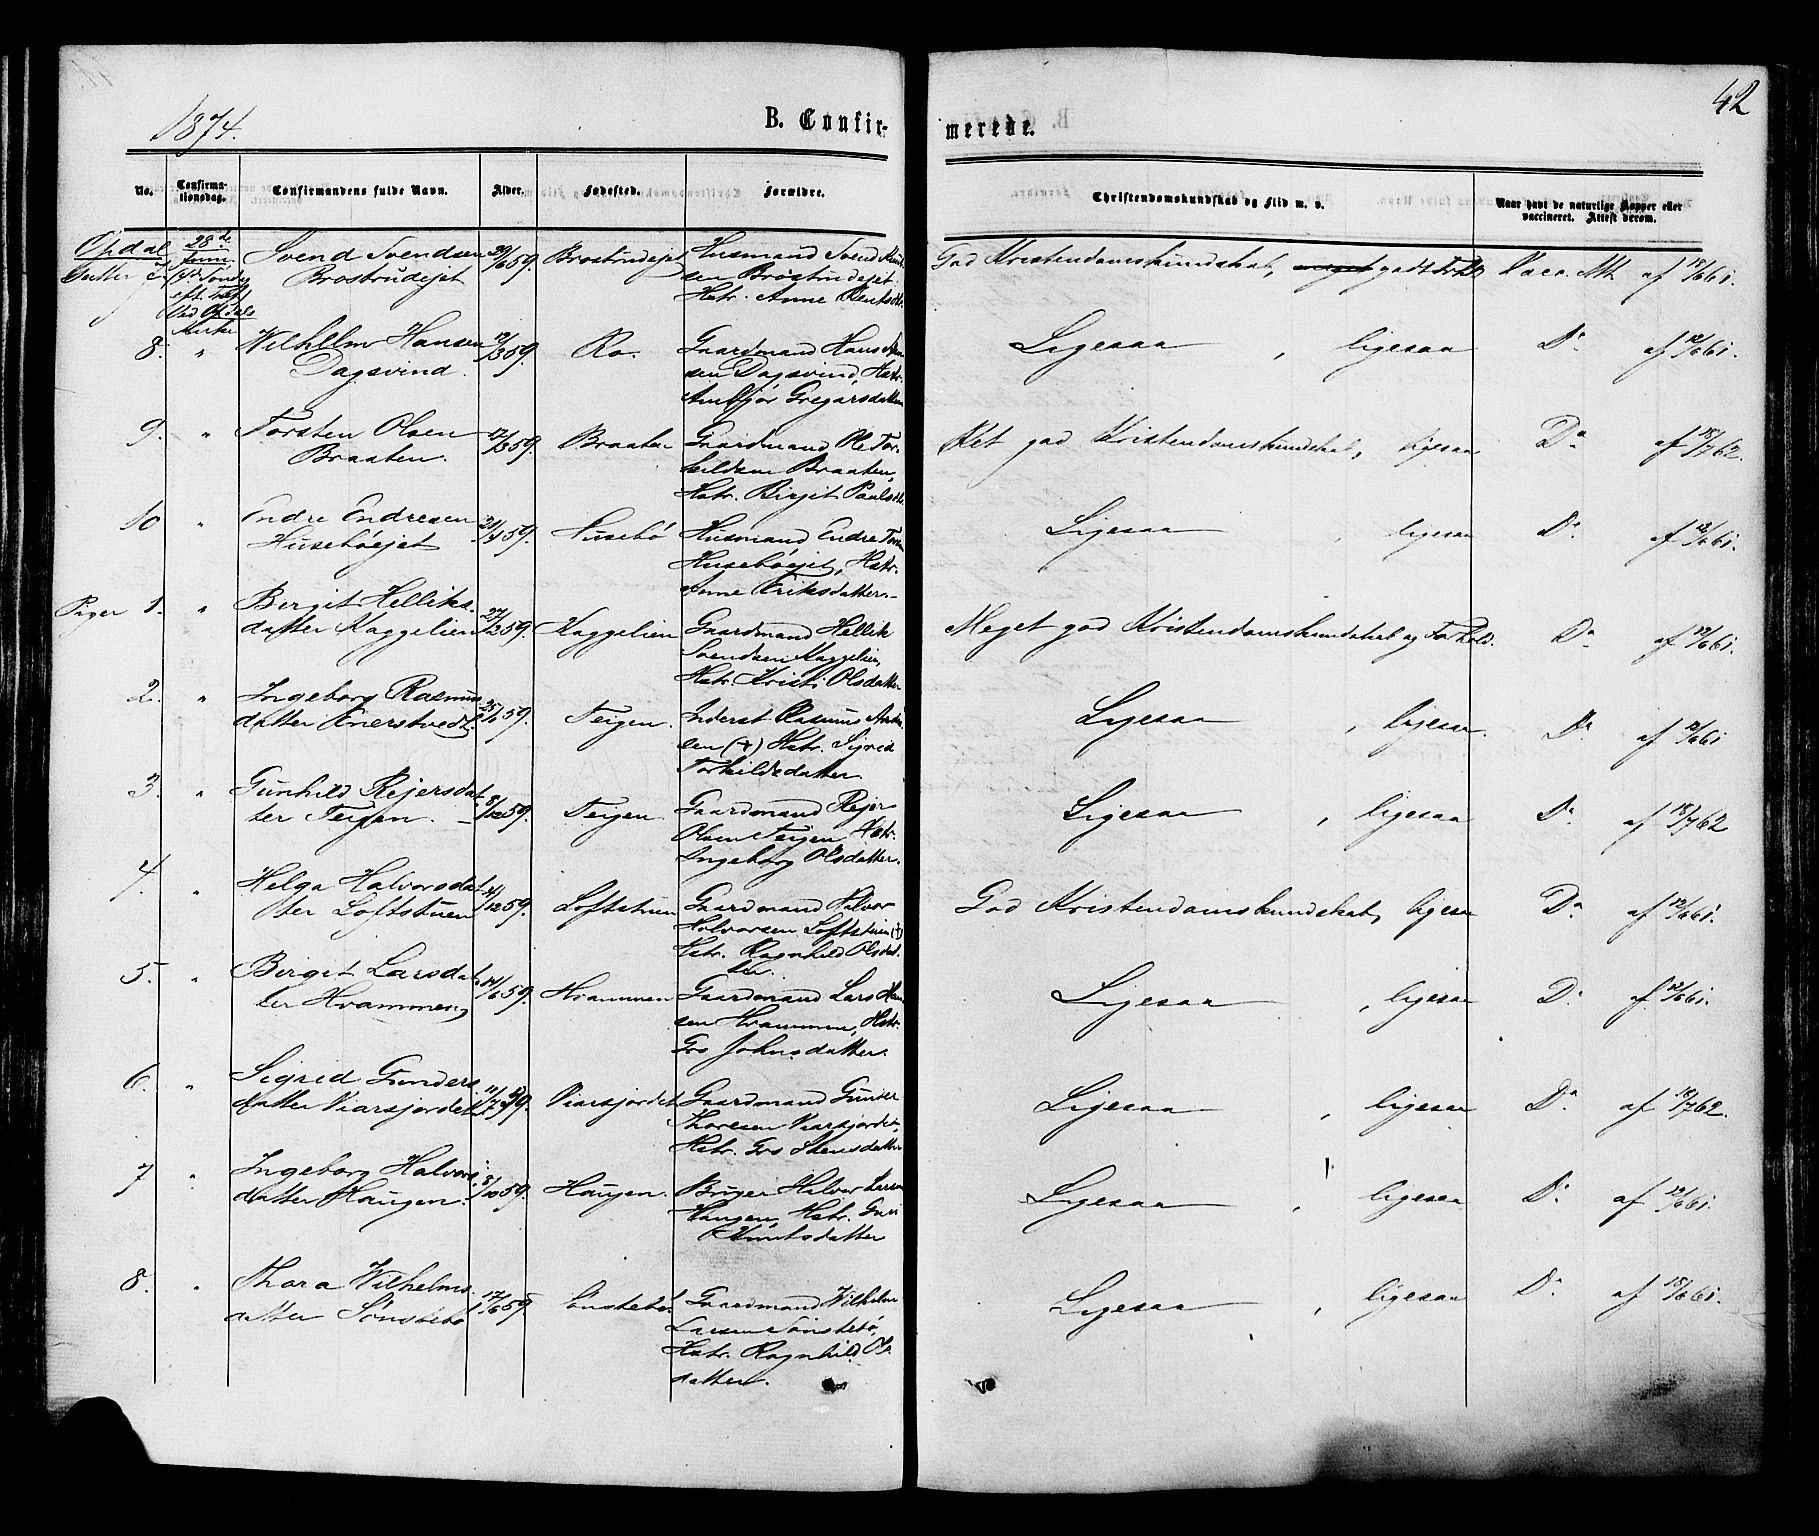 1874.
B. Confirmerede.
42
No.
Confirmationsdag.
Confirmandens fulde Navn.
Alder.
Fødested.
Forældre.
Christendomskundskab og Flid m. v.
Naar havt de naturlige Kopper eller vaccineret. Attest derom.
Opdal
28de Juni
Gutter
Ved Opdals Kirke
Svend Svendsen
Brostrudejet
59.
Brostrudejet
Husmand Svend
sen Brostrudejet
Hstr. Anne
God Kristendomskundskab, meget godt Forh.
Vacc. Att. af 12/6 61.
8. " Wilhelm Hansen
Dagsvind.
19/3 59.
Ro.
Gaardmand Hans
sen Dagsvind, Hstr.
Gregarsdatter
Ligesaa , ligesaa
Do af 12/6 61.
9. " Torsten Olsen
Braaten.
17/3 59.
Braaten
Gaardmand Ole Tor-
kildsen Braaten,
Hstr. Birgit Paalsdtr
Ret god Kristendomskundskab, ligesaa
Do af 18/7 62.
10 " Endre Endresen
Husebøejet
21/4 59.
Husebø
Husmand Endre
Husebøejet, Hstr.
Anne Eriksdatter.
Ligesaa , ligesaa
Do af 12/6 61.
Piger 1. " Birgit Helliks-
datter Kaggelien
27/12 59.
Kaggelien
Gaardmand Hellik
Svendsen Kaggelien,
Hstr. Kristi Olsdatter
Meget god Kristendomskundskab og Forhold.
Do af 12/6 61.
2. " Ingeborg Rasmus
datter
59.
Teigen.
Inderst Rasmus
sen (+) Hstr. Sigrid
Torkildsdatter
Ligesaa , ligesaa.
Do af 12/6 61
3. " Gunhild Rejersdat-
ter Teigen.
8/12 59.
Teigen
Gaardmand Rejer
Olsen Teigen, Hstr.
Ingeborg Olsdatter.
Ligesaa , ligesaa
Do af 18/7 62
4. " Helga Halvorsdat-
ter Loftstuen
11/12 59.
Loftstuen
Gaardmand Halvor
Halvorsen Loftstuen (+)
Hstr. Ragnhild Olsdat-
ter.
God Kristendomskundskab, ligesaa
Do af 12/6 61.
5. " Birgit Larsdat-
ter Hvammen
14/6 59.
Hvammen
Gaardmand Lars
sen Hvammen, Hstr.
Gro Johnsdatter.
Ligesaa , ligesaa
Do af 12/6 61.
6. " Sigrid Gunders
datter Viarsjordet
11/7 59.
Viarsjordet
Gaardmand Gunder
Thoresen Viarsjordet,
Hstr. Gro Stensdatter
Ligesaa , ligesaa
Do af 18/7 62.
7 " Ingeborg Halvors-
datter Haugen.
8/10 59.
Haugen.
Halvor Larsen
Haugen, Hstr. Guri
Knutsdatter
Ligesaa , ligesaa
Do af 12/6 61.
8. " Thora Wilhelms-
datter Sønstebø
17/6 59.
Sønstebø.
Gaardmand Wilhelm
Larsen Sønstebø,
Hstr. Ragnhild Ols
datter.
Ligesaa , ligesaa
Do af 18/6 61.